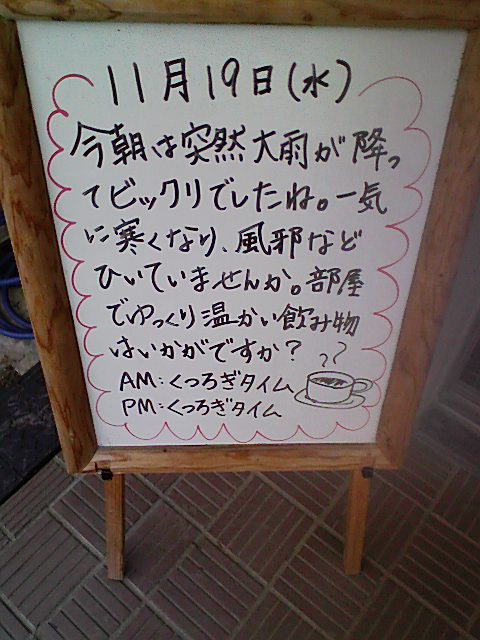 11月19日(水)
今朝は突然大雨が降っ
てビックリでしたね。一気
に寒くなり、風邪など
ひいていませんか。部屋
でゆっくり温かい飲み物
はいかがですか?
AM:くつろぎタイム
PM:くつろぎタイム